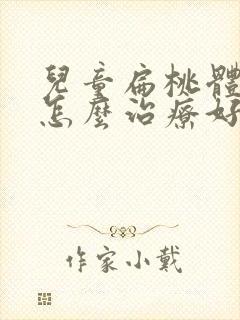 兒童扁桃體
怎麼治療好
作家小戴